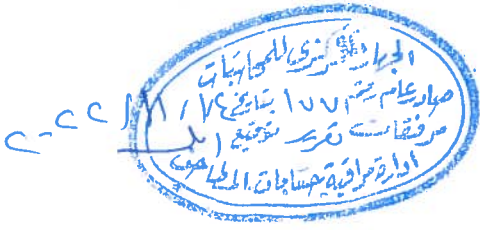 الجهاز المركزى للمحاسبات
صادر عام رقم ١٧٧ بتاريخ ١٧ / ٢٠٢٢
مرفقات تقرير توقيع
ادارة مراقبة حسابات المطاحن